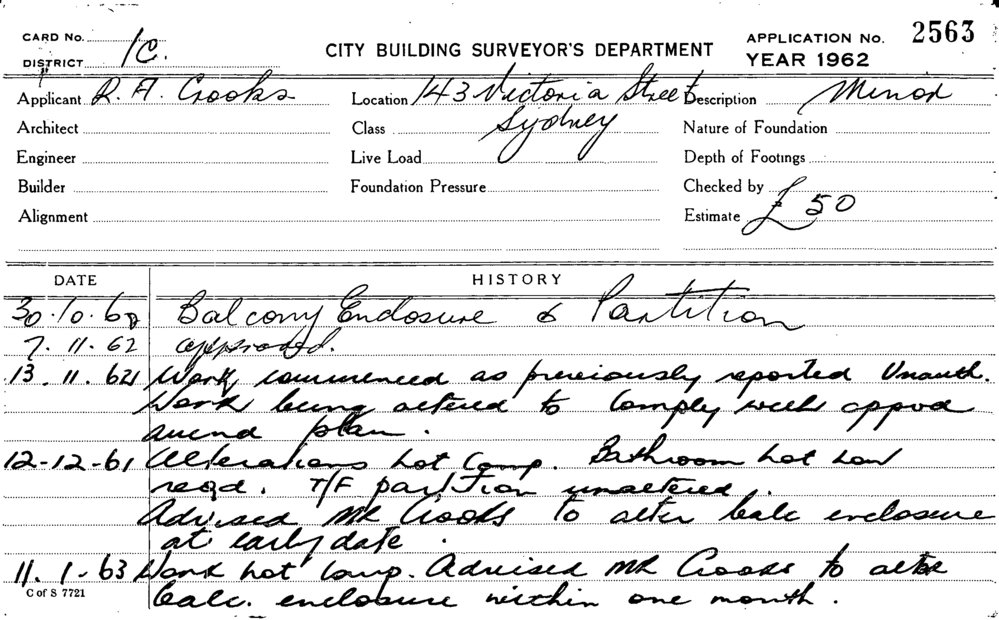 CARD No. 1C. CITY BUILDING SURVEYOR'S DEPARTMENT APPLICATION No. 2563
DISTRICT YEAR 1962
Applicant R. A. Crooks Location 143 Victoria Street Description Minor
Architect Class Sydney Nature of Foundation
Engineer Live Load Depth of Footings
Builder Foundation Pressure Checked by
Alignment Estimate £50
DATE HISTORY
30.10.62 Balcony Enclosure & Partition
7.11.62 approved.
13.11.62 Work commenced as previously reported Unauth.
Work being altered to comply with appvd
amend plan.
12-12-61 Alterations not comp. Bathroom not now
reqd. T/F partition unaltered.
Advised Mr Crooks to alter balc enclosure
at early date.
11.1-63 Work not comp. Advised Mr Crooks to alter
C of S 7721 balc. enclosure within one month.